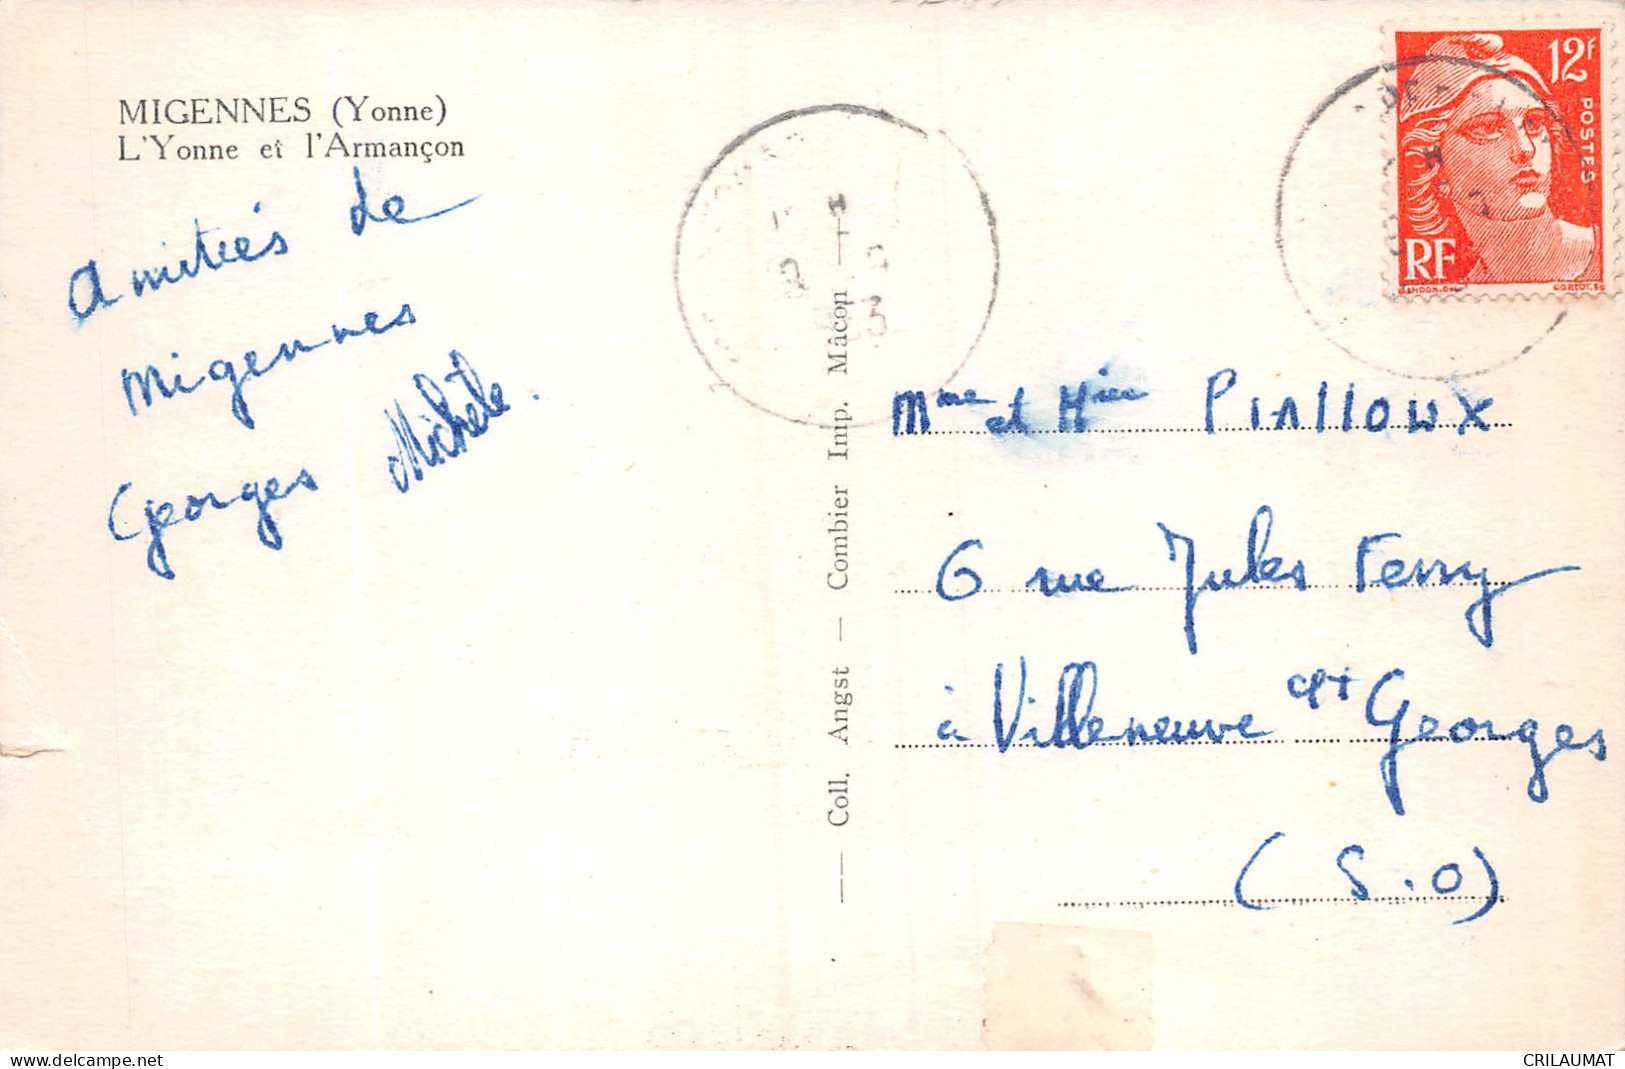 MIGENNES (Yonne)
L'Yonne et l'Armançon
Amitiés de
Migennes
Georges Michèle.
— Coll. Angst — Combier Imp. Mâcon —
12F
POSTES
RF
GANDON.DEL
CORTOT.SC
Mme et Mr PIALLOUX
6 rue Jules Ferry
à Villeneuve St Georges
(S.O)
www.delcampe.net
CRILAUMAT